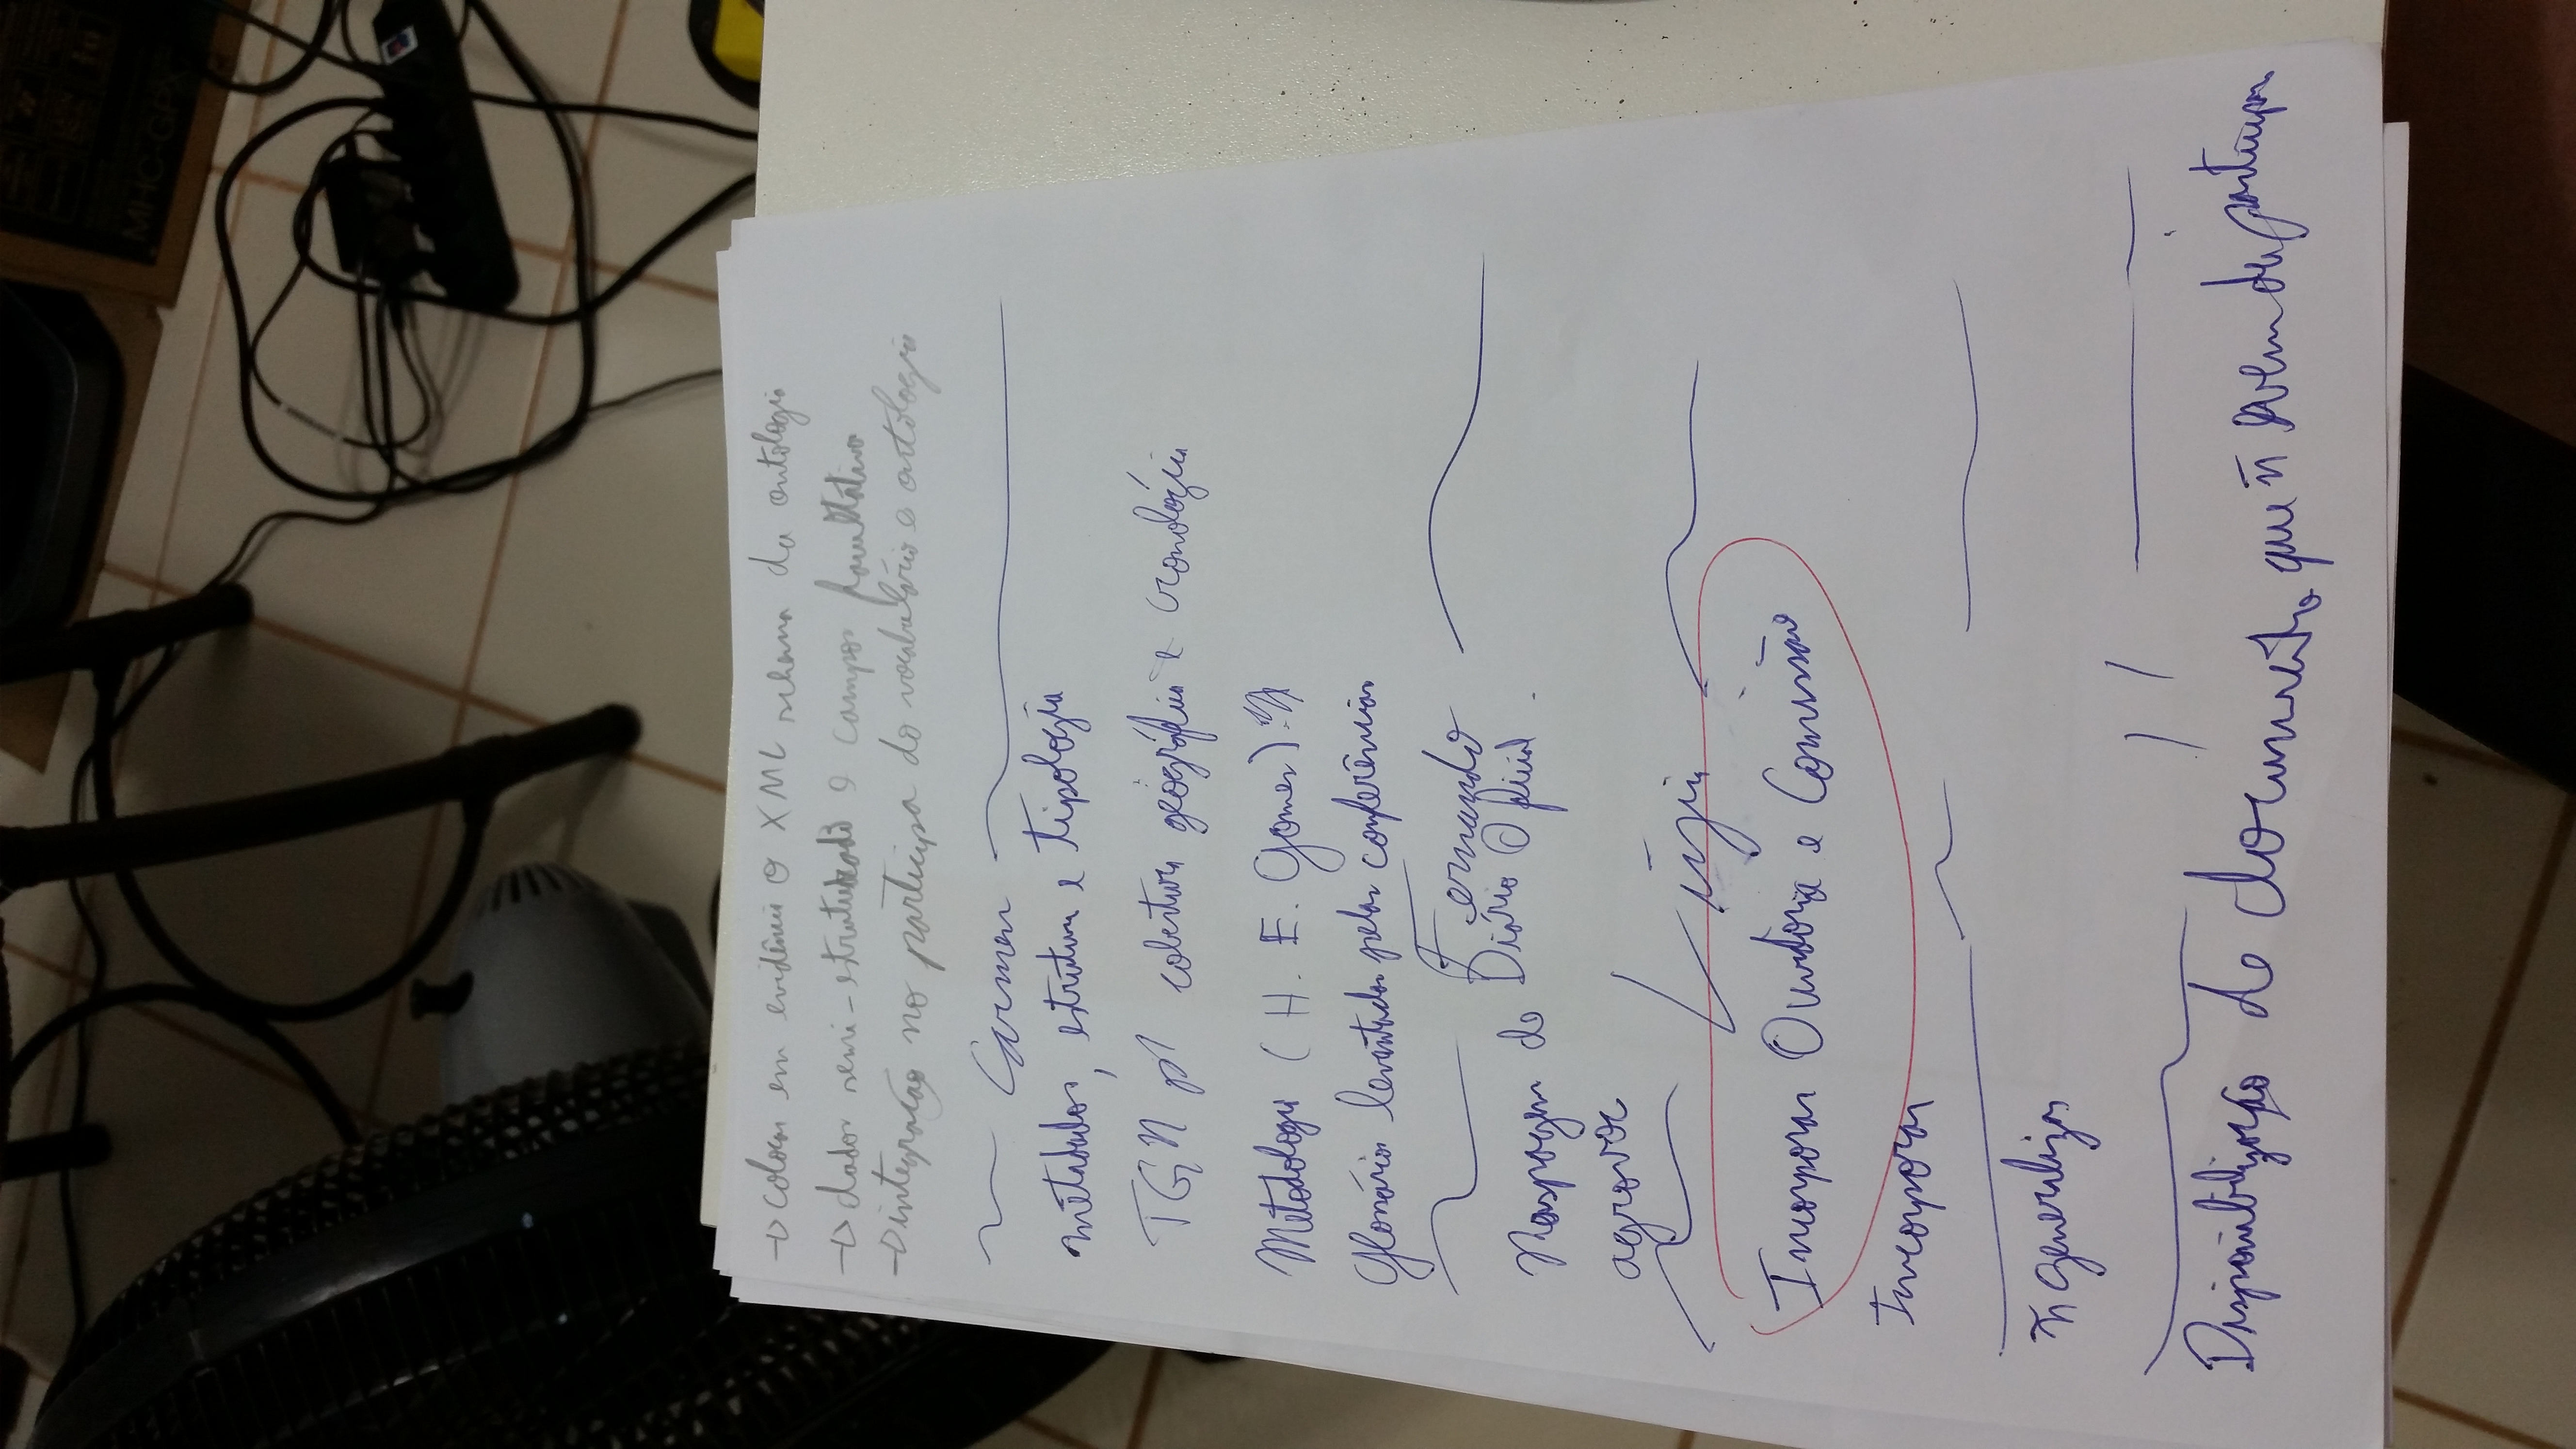 MHC-GPX
10
→ colocar em evidência o XML schema da ontologia
→ dados semi-estruturado e campos facultativos
→ integração no participa do vocabulário e ontologia
Carmen
metadados, estrutura e tipologia
TGN p/ cobertura geográfica e cronológica
Metodologia (H. E. Gomes)
Glossários levantados pelas conferências
Fernando
Raspagem do Diário Oficial.
agrovoc
Lígia
Incorporar Ouvidoria e Comissão
Incorporar
ñ generalizar
Disponibilização de documentos que ñ vem do participa